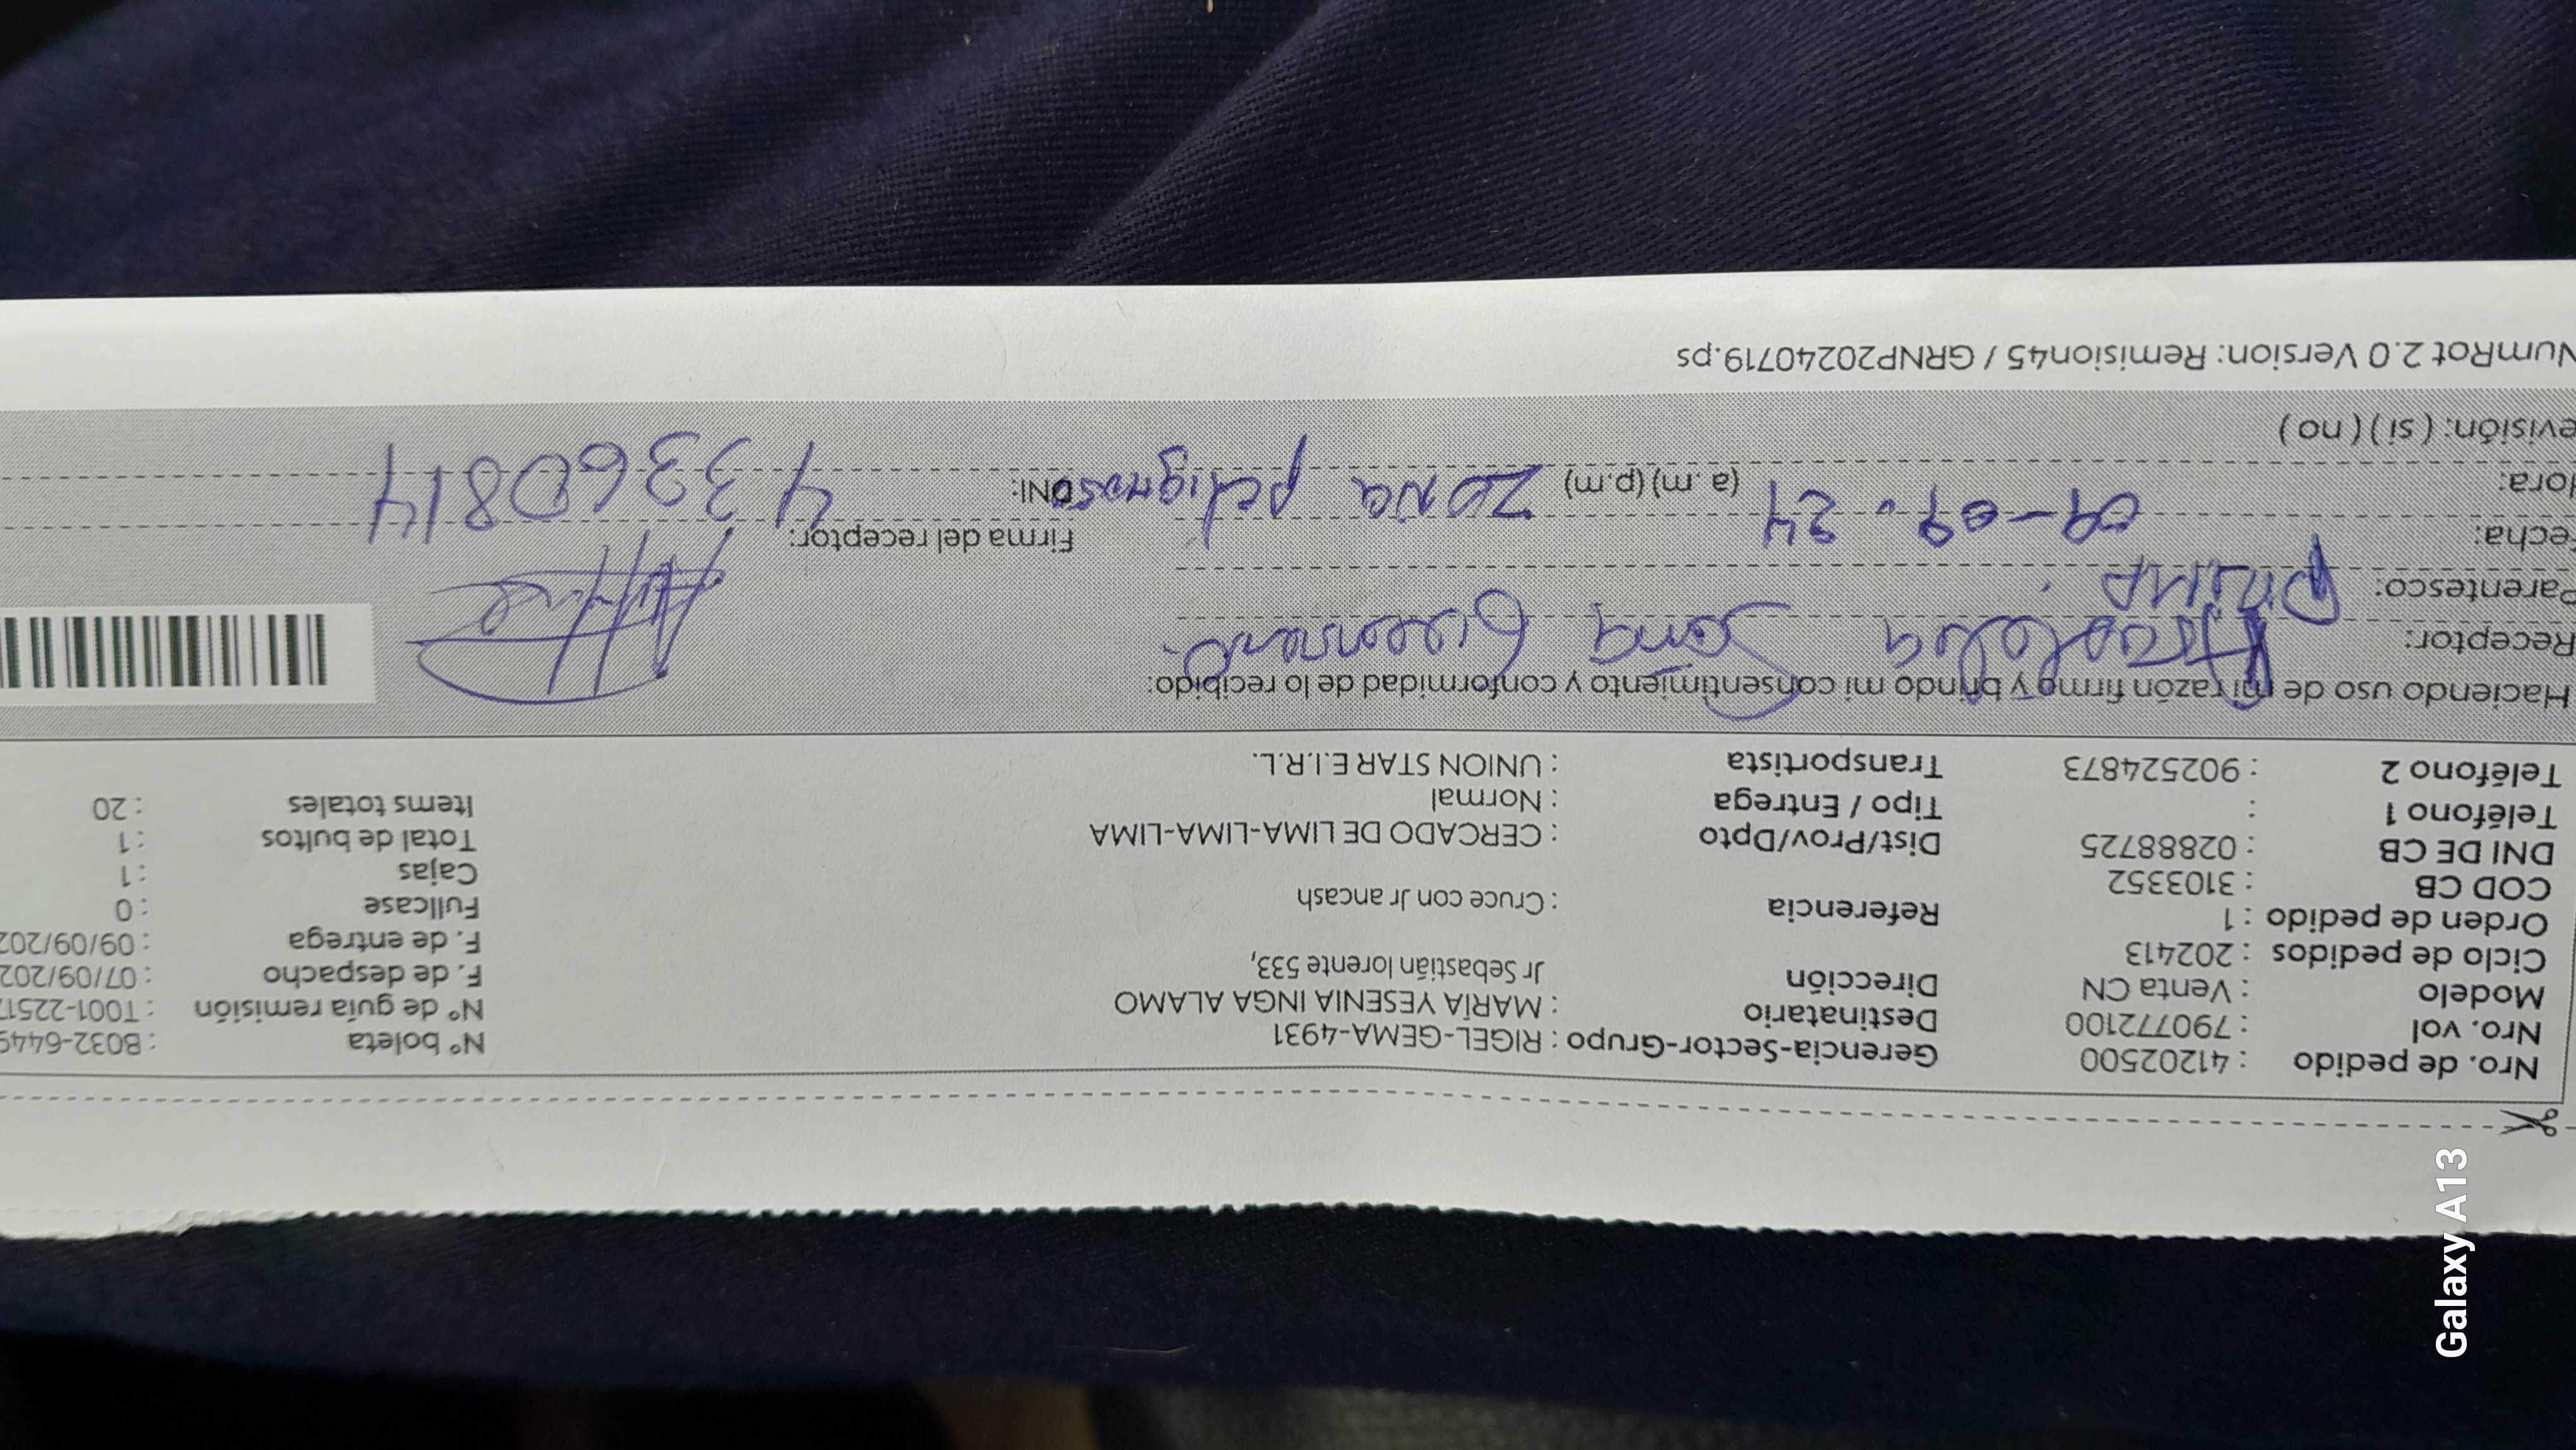 Nro. de pedido : 41202500 Gerencia-Sector-Grupo : RIGEL-GEMA-4931 N° boleta : B032-6449
Nro. vol : 790772100 Destinatario : MARÍA YESENIA INGA ALAMO N° de guía remisión : T001-2251
Modelo : Venta CN Dirección Jr Sebastián lorente 533, F. de despacho : 07/09/202
Ciclo de pedidos : 202413 F. de entrega : 09/09/202
Orden de pedido : 1 Referencia : Cruce con Jr ancash Fullcase : 0
COD CB : 3103352 Cajas : 1
DNI DE CB : 02888725 Dist/Prov/Dpto : CERCADO DE LIMA-LIMA-LIMA Total de bultos : 1
Teléfono 1 : Tipo / Entrega : Normal Items totales : 20
Teléfono 2 : 902524873 Transportista : UNION STAR E.I.R.L.
Haciendo uso de mi razón firmo y brindo mi consentimiento y conformidad de lo recibido:
Receptor:
Parentesco: prima
Fecha: 09-09.24 Firma del receptor:
Hora: (a.m) (p.m) zona peligrosa DNI: 43360814
evisión: ( si ) ( no )
NumRot 2.0 Version: Remision45 / GRNP20240719.ps
Galaxy A13